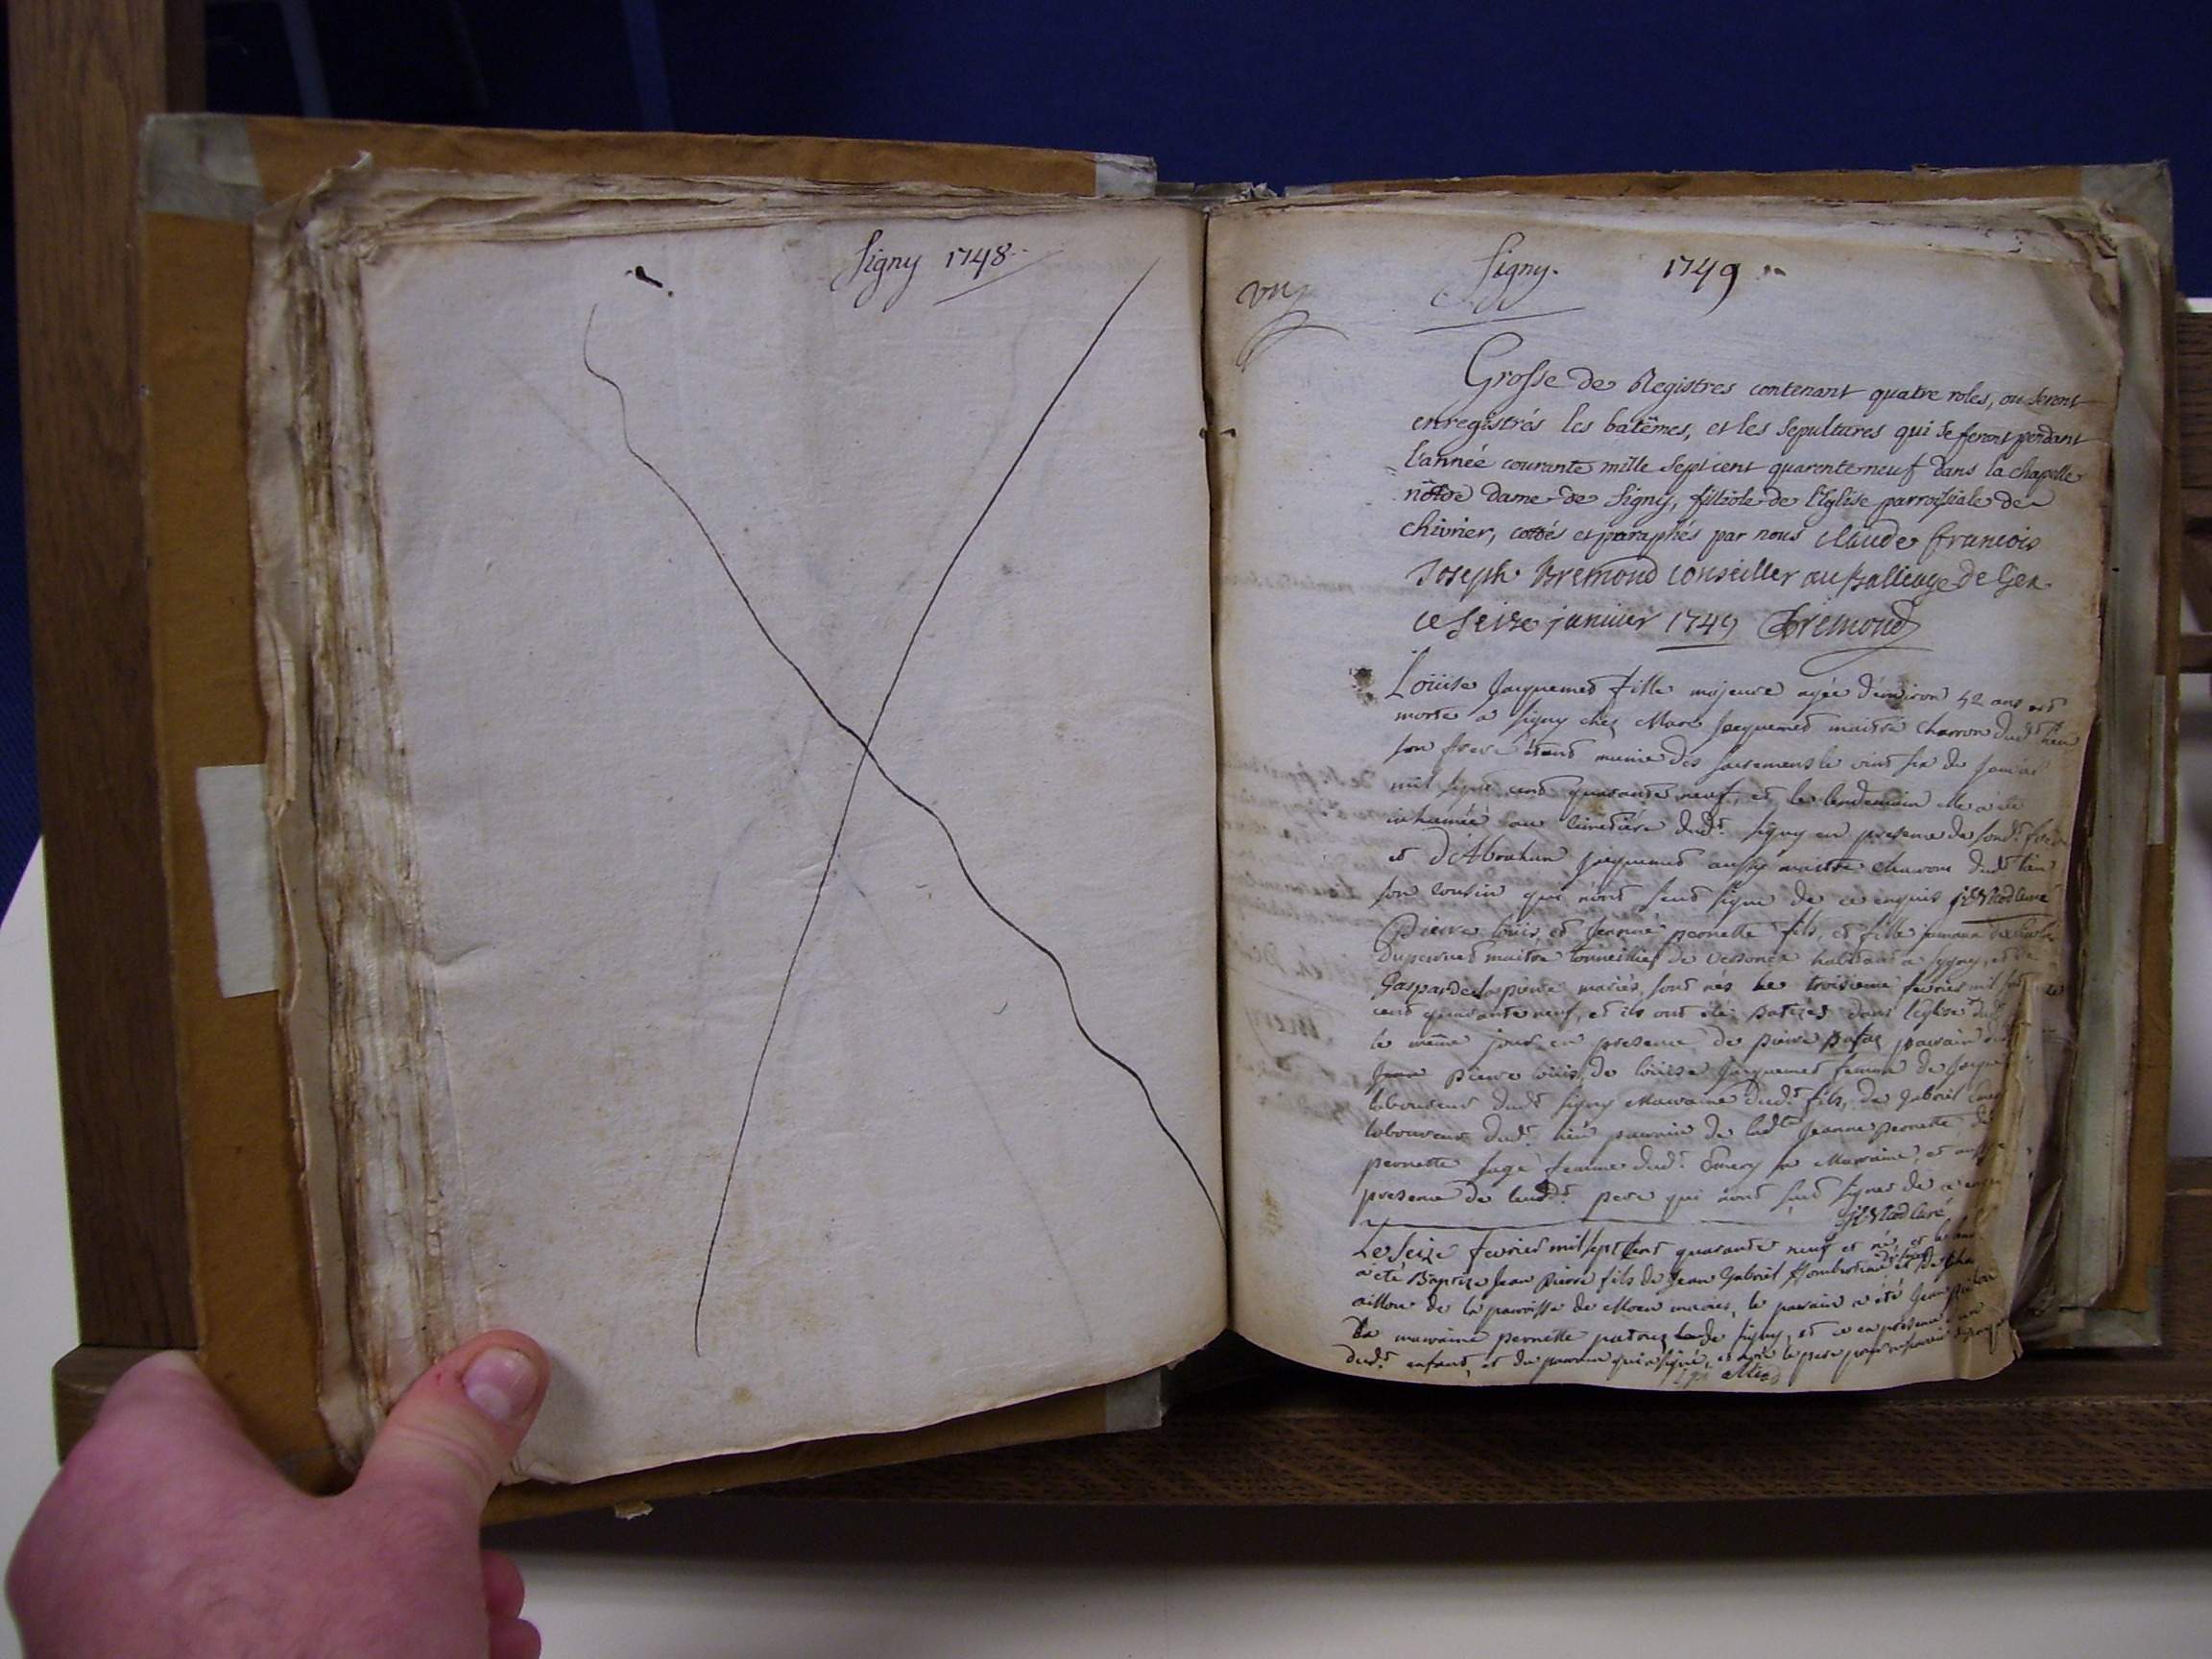 Signy 1748
Signy. 1749
un
Grosse de Registres contenant quatre roles, ou seront
enregistrés les batêmes, et les sepultures qui se feront pendant
l'année courante mille sept cent quarente neuf dans la chapelle
nôtre dame de Signy, filliole de l'Eglise parroissiale de
chivrier, cottés et paraphés par nous claude francois
Joseph Bremond conseiller au Balliage de Gex
ce seize janvier 1749 Bremond
Loüise Jacquemet fille majeure agée d'environ 42 ans est
morte a Signy chez Marc Jacquemet maitre charron dud.t lieu
son frere étant munie des sacremens le vint six de janvier
mil sept cent quarante neuf, et le lendemain elle a été
inhumée au cimetière dud.t Signy en presence de sond.t frere
et d'Abraham Jacquemet aussy maitre charron dud.t lieu
son cousin qui n'ont seus signe de ce enquis
Pierre loüis, et Jeanne pernette fils, et fille jumeaux de
maitre tonneillier de habitant a Signy, et de
Gasparde Lapierre mariés, sont nés le troisieme fevrier mil sept
cent quarante neuf, et ils ont été batisés dans l'eglise dud.t
le même jour en presence de pierre parain dud.t
Jean pierre loüis, de loüise Jacquemet femme de
laboureur dud.t Signy Maraine dud.t fils, de Gabriel
laboureur dud.t lieu parain de lad.te Jeanne pernette de
pernette sage femme dud.t sa Maraine, et aussy
presence de leurd.t pere qui n'ont seus signer de ce enquis
Le Seize fevrier mil sept cent quarante neuf est né, et
a été Baptize Jean Pierre fils de Jean Gabriel et de
de la parroisse de mariés, le parain a été Jean
la maraine pernette de Signy, et ce en presence
dud.t enfant, et du parain qui a signé, et non le pere pour